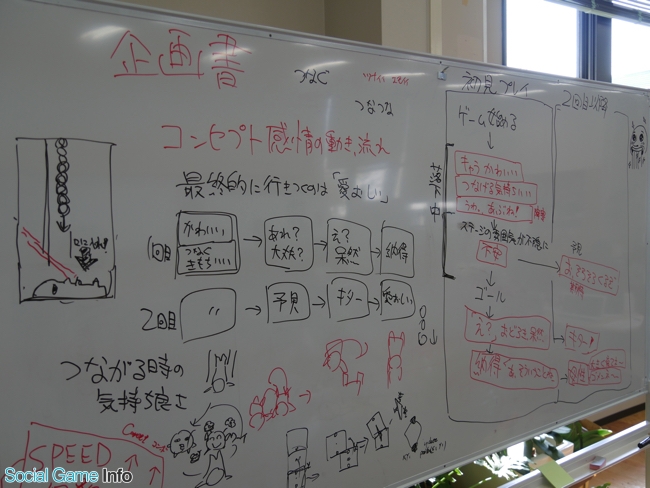 企画書
つなぐ
つなつな
コンセプト感情の動き、流れ
最終的に行きつくのは「愛おしい」
1回目
かわいい
つなぐ
きもちいい
あれ?
大丈夫?
え?
呆然
納得
2回目
〃
予見
キター
愛おしい
つながる時の
気持ち良さ
SPEED
初見プレイ
ゲーム始める
落下中
キャラかわいい
つなげる気持ちいい
うわ、あぶね!
不安
ゴール
え?おどろき呆然
納得
2回目以降
予見
キター!
Social Game Info